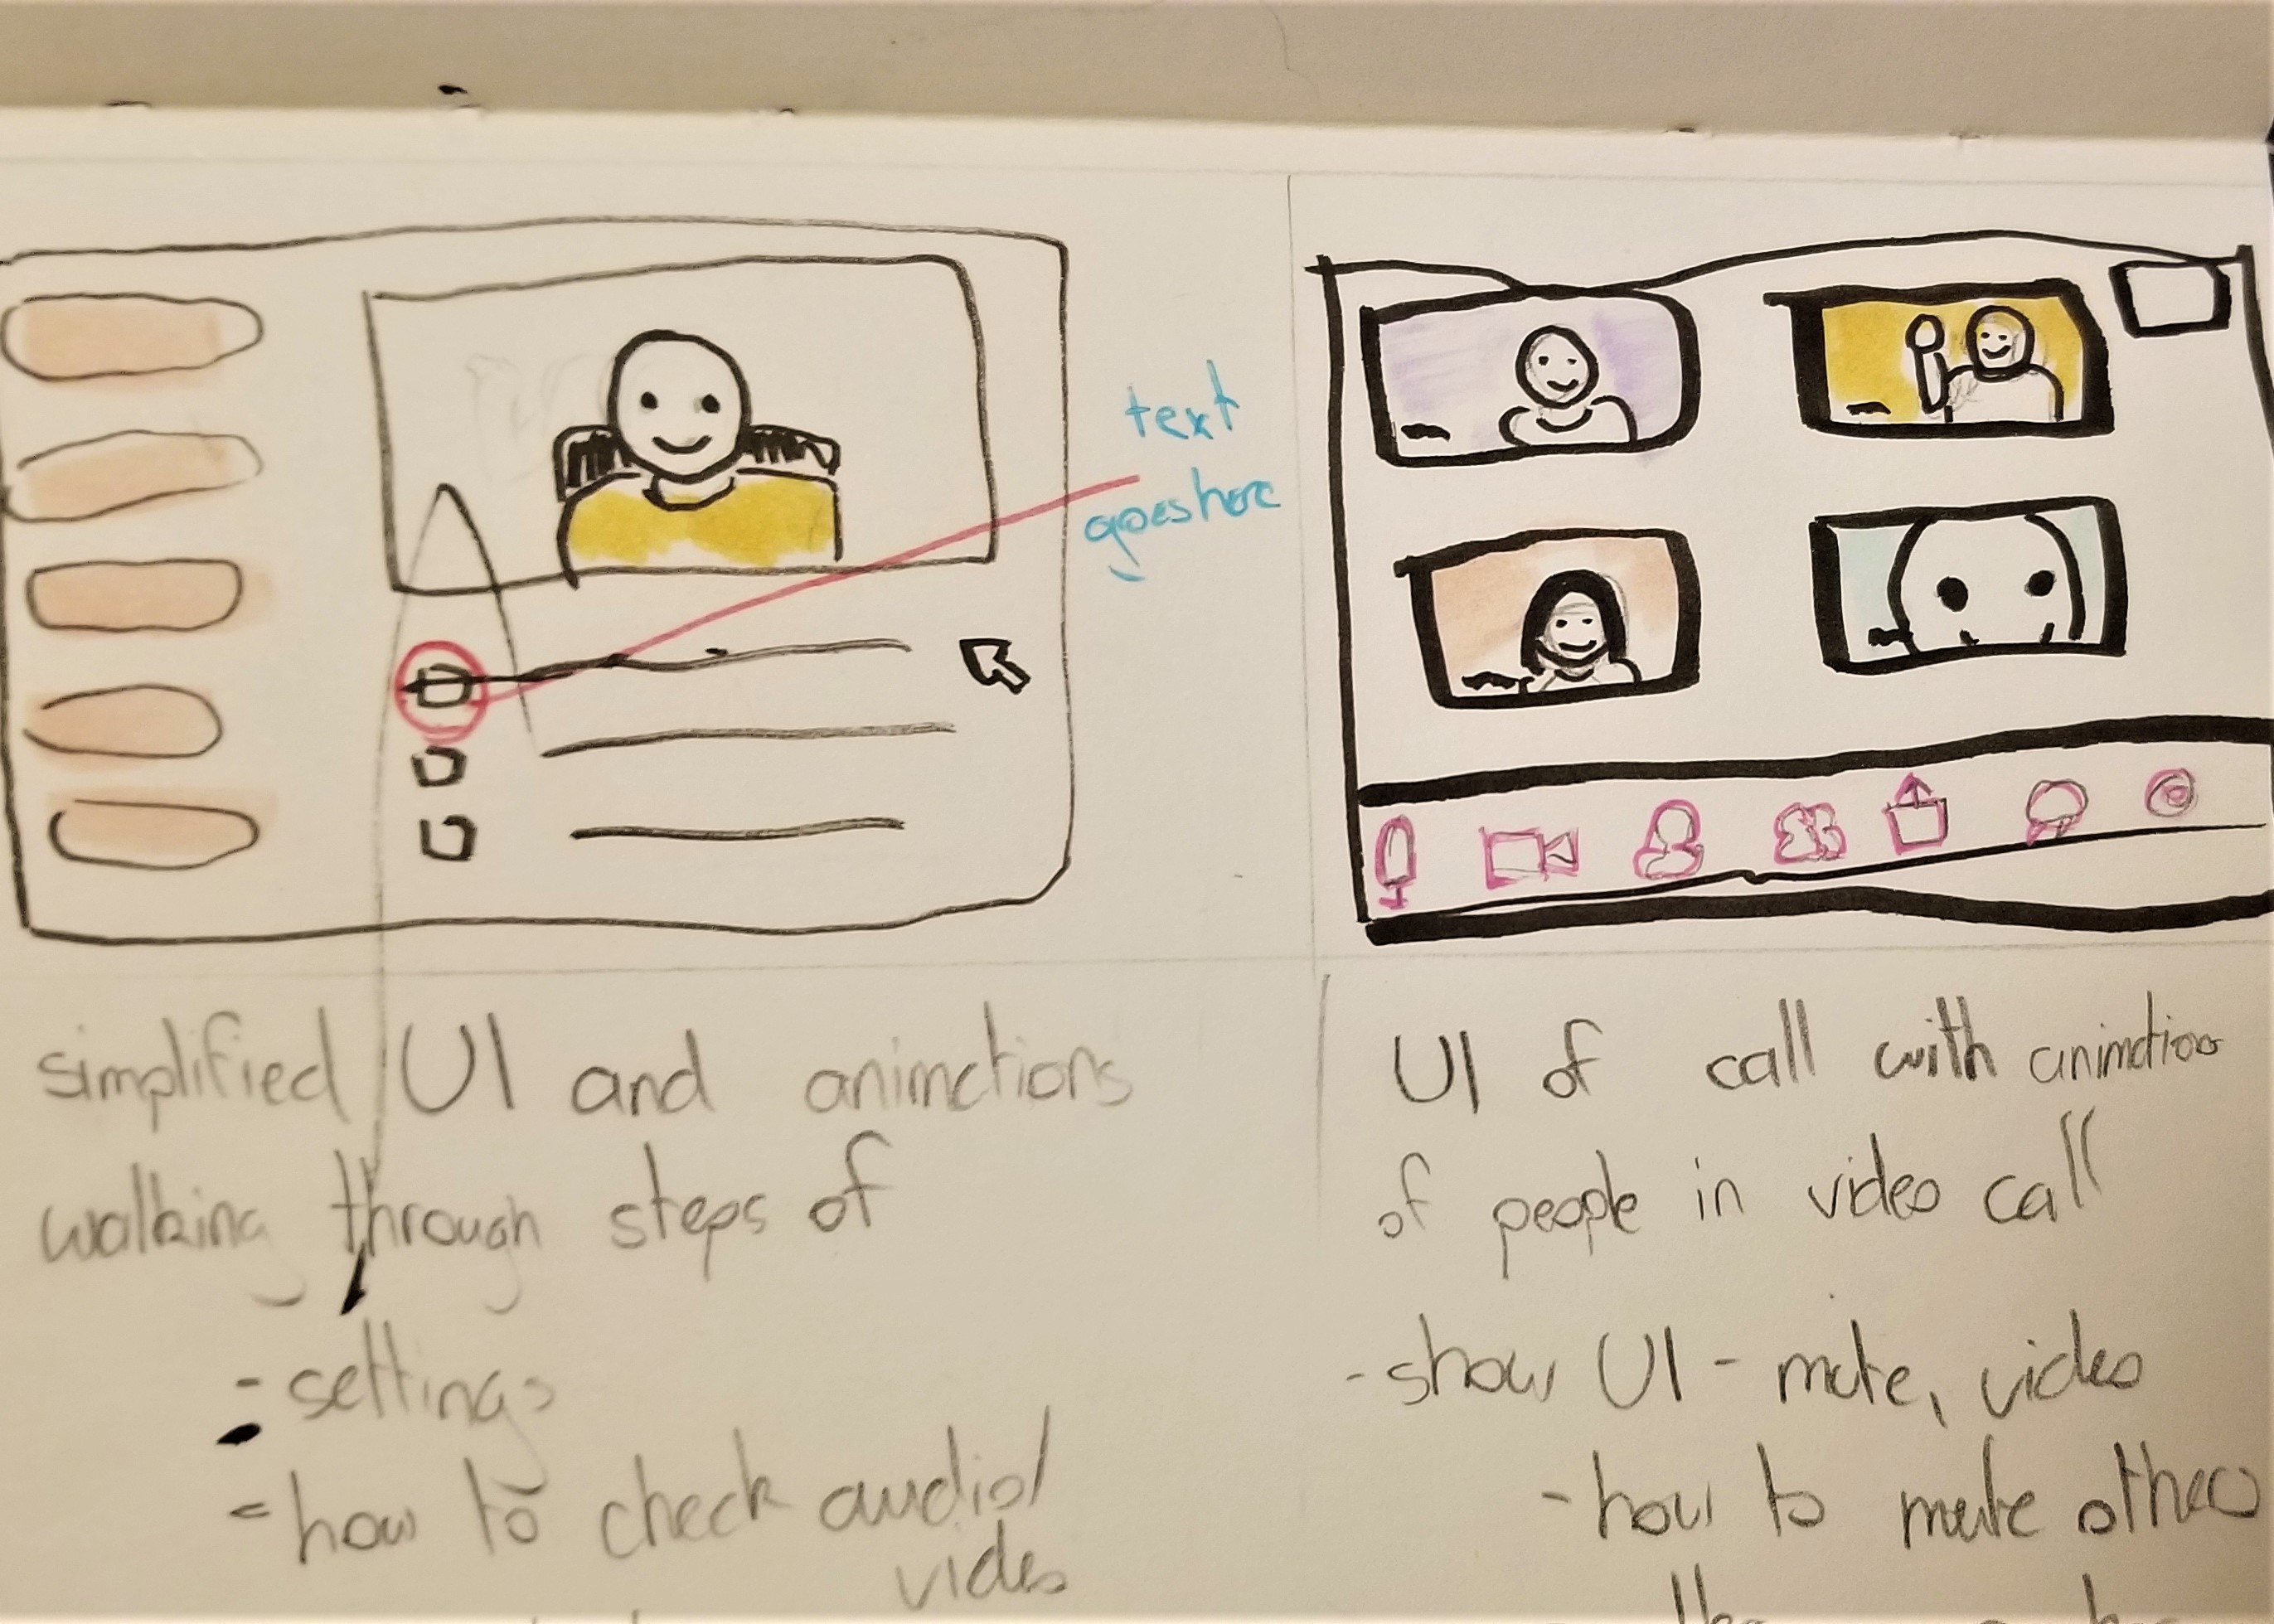 text
goes here
simplified UI and animations
walking through steps of
- settings
- how to check audio/
video
UI of call with animation
of people in video call
- show UI - mute, video
- how to mute others